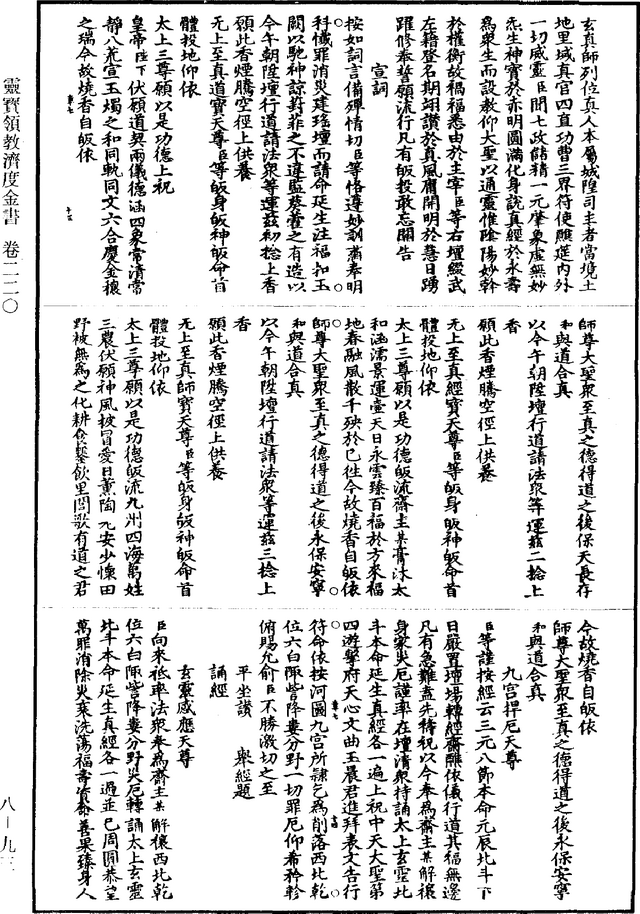 靈寶領教濟度金書 卷二二〇
八—九三
玄真師列位真人本屬城隍司主者當境土
地里域真官四直功曹三界符使醮筵內外
一切威靈臣聞七政儲精一元肇象虛無妙
炁生神寶於赤明圓滿化身說真經於永壽
為眾生而設教仰大聖以通靈惟陰陽妙斡
於權衡故禍福悉由於主宰臣等右壇綴武
左籍登名期翊讚於真風膺開明於慧日踴
躍修奉誓願流行凡有皈投敢忘關告
宣詞
按如詞言備殫情切臣等恪遵妙訓肅奉明
科懺罪消災建瑤壇而請命延生注福扣玉
闕以馳神諒葑菲之不遺監葵藿之有造以
今午朝陞壇行道請法眾等運茲初捻上香
願此香煙騰空徑上供養
無上至真道寶天尊臣等皈身皈神皈命首
體投地仰依
太上三尊願以是功德上祝
皇帝陛下伏願道契兩儀德涵四象常清常
靜八荒宣玉燭之和同軌同文六合慶金穰
之瑞今故燒香自皈依
師尊大聖眾至真之德得道之後保天長存
和與道合真
以今午朝陞壇行道請法眾等運茲二捻上
香
願此香煙騰空徑上供養
無上至真經寶天尊臣等皈身皈神皈命首
體投地仰依
太上三尊願以是功德皈流齋主某膏沐太
和涵濡景運壺天日永雲臻百福於方來福
地春融風散千殃於已往今故燒香自皈依
師尊大聖眾至真之德得道之後永保安寧
和與道合真
以今午朝陞壇行道請法眾等運茲三捻上
香
願此香煙騰空徑上供養
無上至真師寶天尊臣等皈身皈神皈命首
體投地仰依
太上三尊願以是功德皈流九州四海萬姓
三農伏願神風披冒愛日薰陶凡安少懷田
野被無為之化耕食鑿飲里閭歌有道之君
今故燒香自皈依
師尊大聖眾至真之德得道之後永保安寧
和與道合真
九宮捍厄天尊
臣等謹按經云三元八節本命元辰北斗下
日嚴置壇場轉經齋醮依儀行道其福無邊
凡有急難盡先禱祝以今奉為齋主某解禳
身家災厄謹率在壇清眾持誦太上玄靈北
斗本命延生真經各一遍上祝中天大聖第
四遊擊府天心文曲玉晨君進拜表文告行
符命依按河圖九宮所隸乞為削落西北乾
位六白陬訾降婁分野一切罪厄仰希矜軫
俯賜允俞臣不勝激切之至
平坐讚 舉經題
誦經
玄靈感應天尊
臣向來祗率法眾奉為齋主某解禳西北乾
位六白陬訾降婁分野災厄轉誦太上玄靈
北斗本命延生真經各一過並已周圓恭望
萬罪消除災衰洗蕩福壽資命善果臻身人